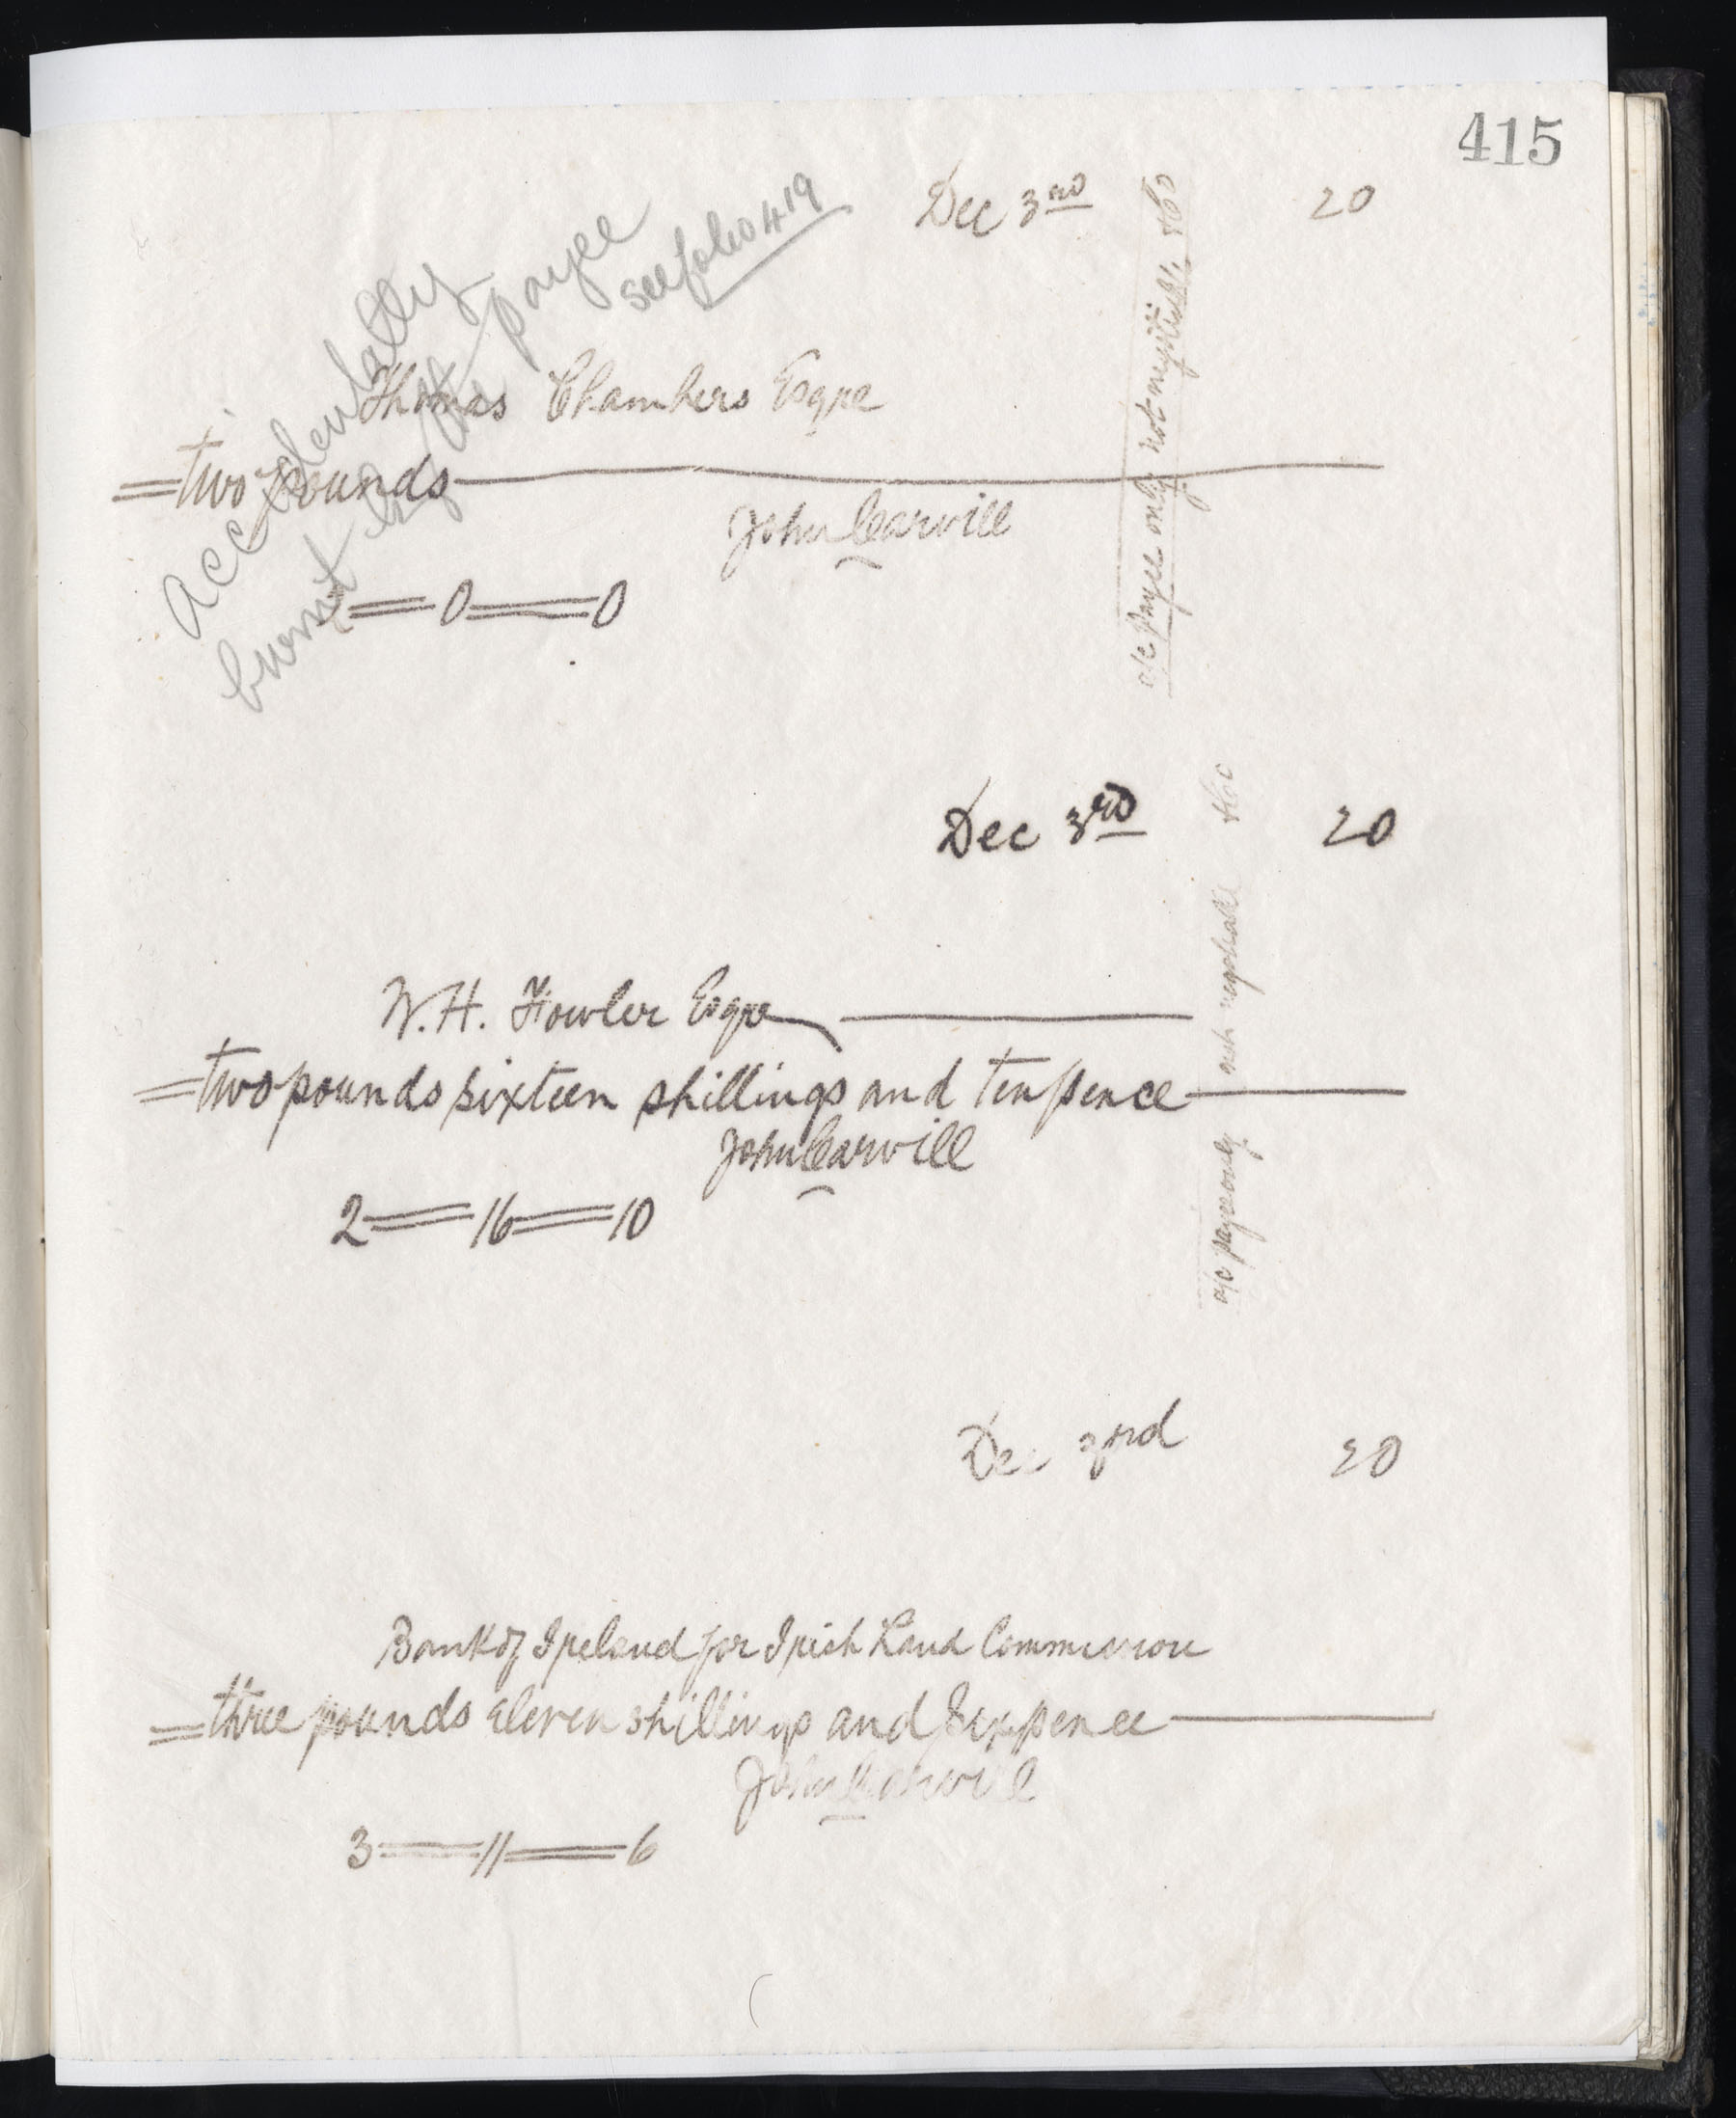 415
Dec 3rd 20
Accidentally
burnt by the payee
see folio 419
Thomas Chambers Esqre
= two pounds
John Carvill
2 = 0 = 0
a/c payee only not negotiable & Co
Dec 3rd 20
W. H. Fowler Esqre
= two pounds sixteen shillings and ten pence
John Carvill
2 = 16 = 10
a/c payee only not negotiable & Co
Dec 3rd 20
Bank of Ireland for Irish Land Commission
= three pounds eleven shillings and sixpence
John Carvill
3 = 11 = 6